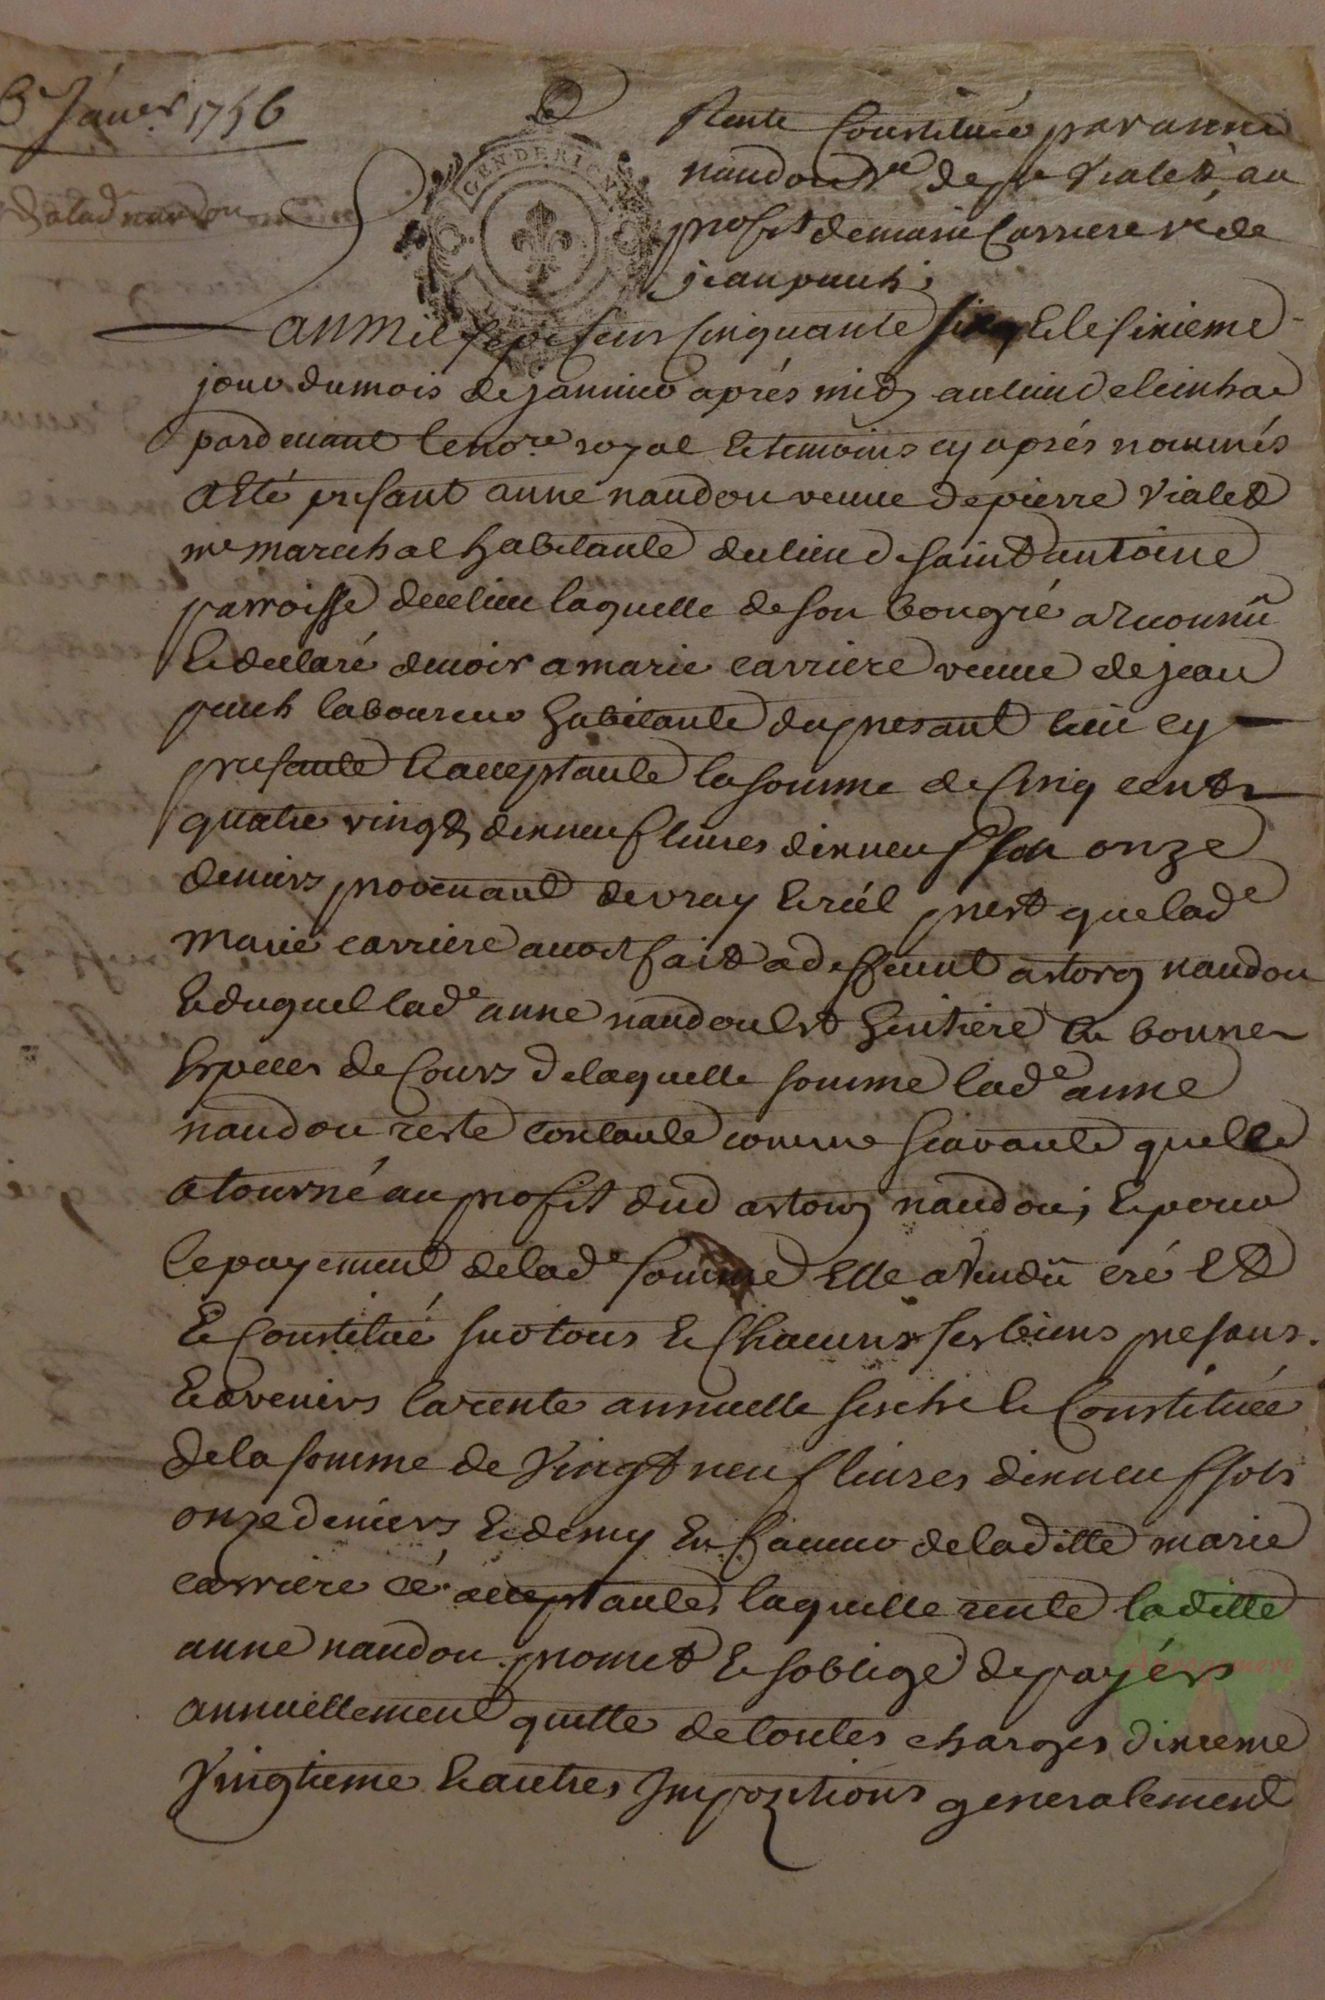 6e Janer 1756
Rente Constituée par anne
naudou ve de pre Vialet au
profit de marie Carriere ve de
jean puech;
Lan mil sept cens cinquante six et le sixieme
jour du mois de janvier aprés midy au lieu de
pardevant le nore royal et temoins cy aprés nommés
a eté presant anne naudou veuve de pierre Vialet
me marechal habitante du lieu de saint antoine
parroisse du lieu laquelle de son bon gré a reconnu
et declaré devoir a marie carriere veuve de jean
puech laboureur habitante du presant lieu cy
presante et acceptante la somme de cinq cents
quatre vingt dixneuf livres dixneuf sols onze
deniers provenant de vray et réél prest que lade
marie carriere avoit fait a deffeunt astorg naudou
et duquel lade anne naudou est heritiere en bonnes
especes de cours de laquelle somme lade anne
naudou reste contante comme scavante quelle
a tourné au profit dud astorg naudou; et pour
le payement de lade somme elle a vendu cré et
et constitué sur tous et chacuns ses biens presans
et avenirs la rente annuelle seche et constituée
de la somme de vingt neuf livres dixneuf sols
onze deniers et demy en faveur de laditte marie
carriere acceptante, laquelle rente laditte
anne naudou promet et soblige de payérs
annuellement quitte de toutes charges dixieme
vingtieme et autres impozitions generalement